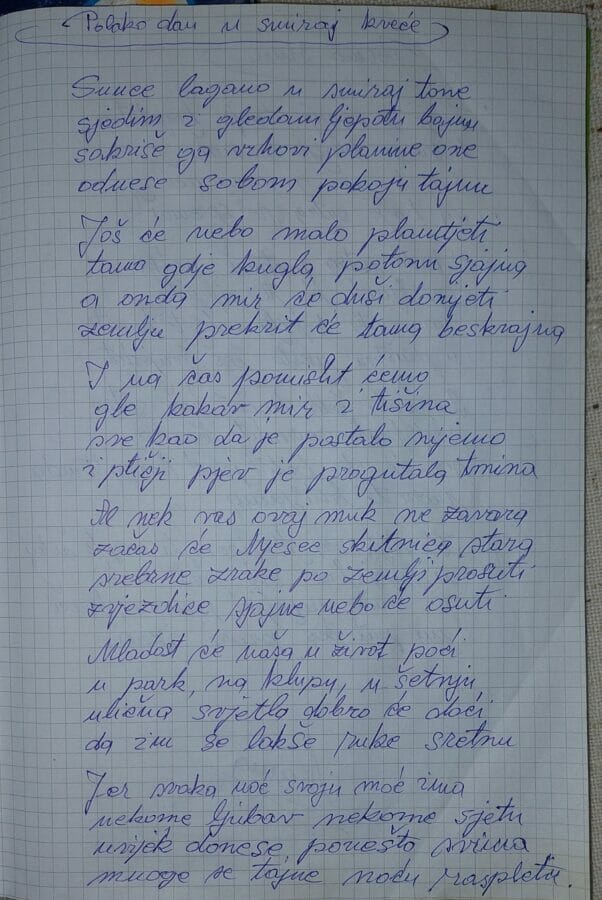 Polako dan u smiraj kreće
Sunce lagano u smiraj tone
sjedim i gledam ljepotu bajnu
sakriše ga vrhovi planine one
odnese sobom pokoju tajnu
Još će nebo malo plamtjeti
tamo gdje kugla potonu sjajna
a onda mir će duši donjeti
zemlju prekrit će tama beskrajna
I na čas pomislit ćemo
gle kakav mir i tišina
sve kao da je postalo nijemo
i ptičji pjev je progutala tmina
Al nek vas ovaj muk ne zavara
začas će Mjesec skitnica stara
srebrne zrake po zemlji prosuti
zvjezdice sjajne nebo će osuti
Mladost će naša u život poći
u park, na klupu, u šetnju
ulična svjetla dobro će doći
da im se lakše ruke sretnu
Jer svaka noć svoju moć ima
nekome ljubav nekome sjetu
uvijek donese ponešto svima
mnoge se tajne noću raspletu.